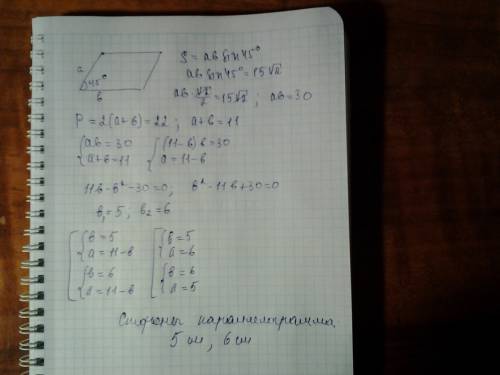 a
45°
b
S = ab sin 45°
ab sin 45° = 15√2
ab · √2/2 = 15√2 ; ab = 30
P = 2(a+b) = 22 ; a+b = 11
{ab = 30 {(11-b)b = 30
{a+b = 11 {a = 11-b
11b - b² - 30 = 0, b² - 11b + 30 = 0
b₁ = 5 ; b₂ = 6
[{b = 5 [{b = 5
[{a = 11-b [{a = 6
[{b = 6 [{b = 6
[{a = 11-b [{a = 5
Стороны параллелограмма
5 см, 6 см